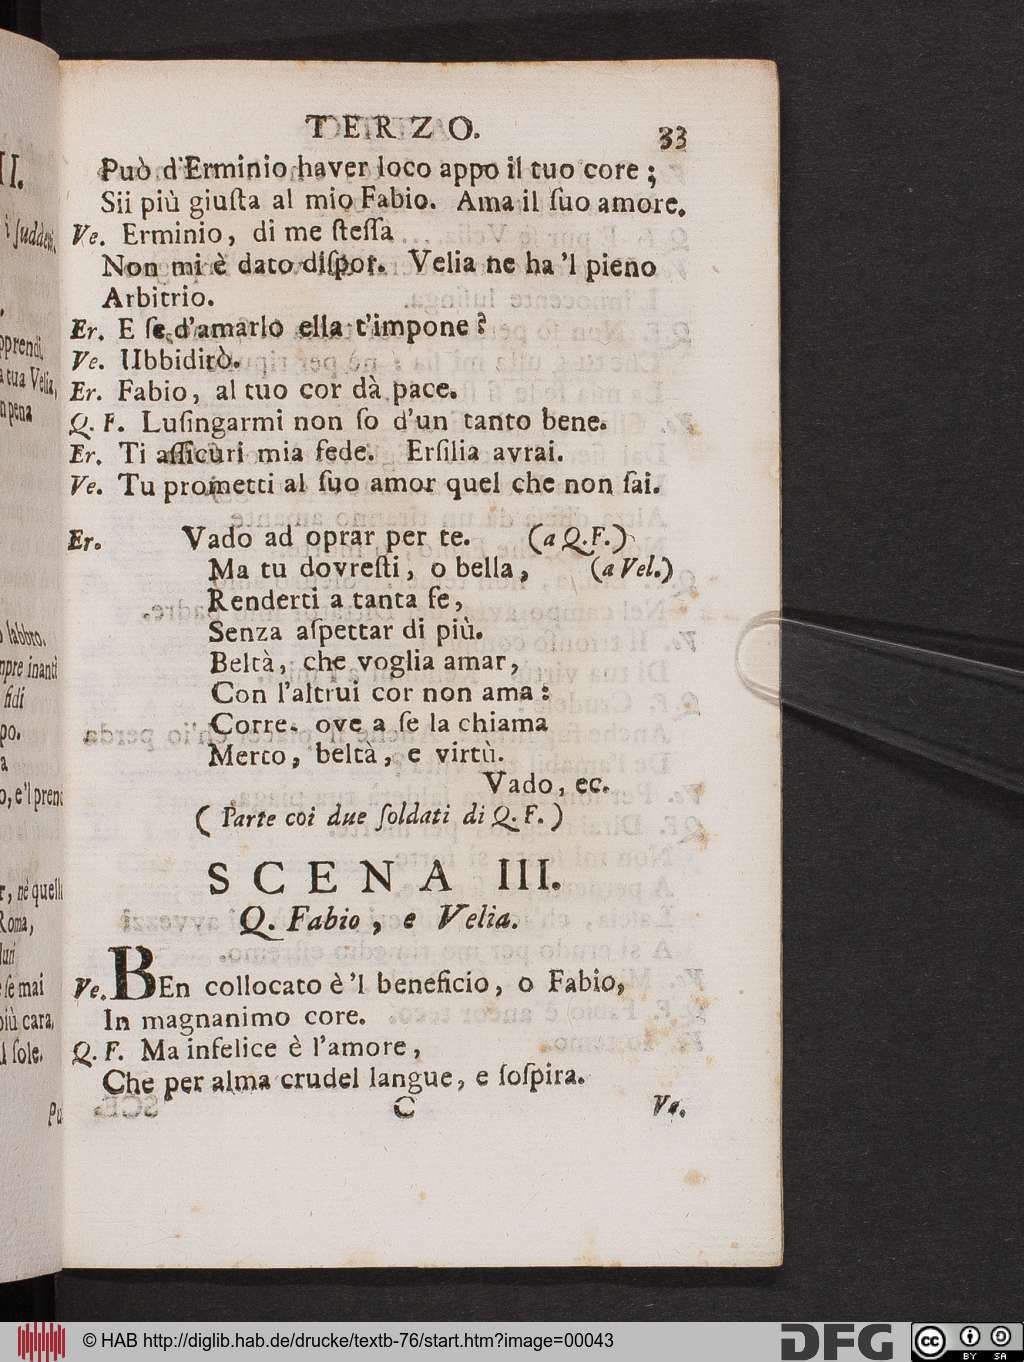 TERZO.
33
Può d'Erminio haver loco appo il tuo core;
Sii più giuſta al mio Fabio. Ama il ſuo amore.
Ve. Erminio, di me ſteſſa
Non mi è dato diſpor. Velia ne ha 'l pieno
Arbitrio.
Er. E ſe d'amarlo ella t'impone?
Ve. Ubbidirò.
Er. Fabio, al tuo cor dà pace.
Q. F. Luſingarmi non ſo d'un tanto bene.
Er. Ti aſſicuri mia fede. Erſilia avrai.
Ve. Tu prometti al ſuo amor quel che non ſai.
Er. Vado ad oprar per te. (a Q.F.)
Ma tu dovreſti, o bella, (a Vel.)
Renderti a tanta fe,
Senza aſpettar di più.
Beltà, che voglia amar,
Con l'altrui cor non ama:
Corre. ove a ſe la chiama
Merto, beltà, e virtù.
Vado, ec.
( Parte coi due ſoldati di Q. F. )
SCENA III.
Q. Fabio, e Velia.
Ve. BEn collocato è 'l beneficio, o Fabio,
In magnanimo core.
Q. F. Ma infelice è l'amore,
Che per alma crudel langue, e ſoſpira.
C
Ve.
II.
i ſuddetti.
apprendi,
a tua Velia,
n pena
labbro.
inanti
fidi
po.
a
o, e'l prend
r, nè quella
Roma,
ſe mai
più cara,
l ſole.
© HAB http://diglib.hab.de/drucke/textb-76/start.htm?image=00043
DFG
cc
BY SA